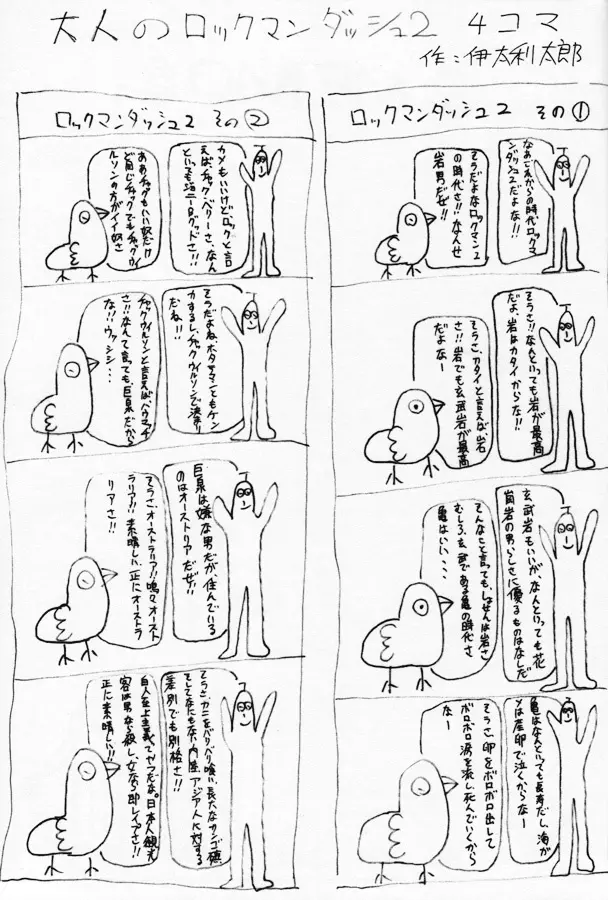 大人のロックマンダッシュ2 4コマ
作:伊太利太郎
ロックマンダッシュ2 その①
なあこれからの時代ロックマ
ンダッシュ2だよな!!
そうだよなロックマン2
の時代さ!!なんせ
岩男だぜ!!
そうさ!!なんといっても岩が最高
だよ、岩はカタイからな!!
そうさ、カタイと言えば岩石
さ!!岩でも玄武岩が最高
だよなー
玄武岩もいいが、なんといっても花
崗岩の男らしさに優るものはなしだ
そんなこと言っても、しょせんは岩さ
むしろ、玄武である亀の時代さ
亀はいい、、、
亀はなんといっても長寿だし、海が
メは産卵で泣くからなー
そうさ、卵をボロボロ出して
ボロボロ涙を流し死んでいくから
なー
ロックマンダッシュ2 その②
カメもいいけど、ロックと言
えば、チャック・ベリーさ、なん
といっても
グッドさ!!
ああチャックもいい奴だけ
ど同じチャックでもチャックウィ
ルソンの方がイイ奴さ
そうだよね、ホタテマンともケン
カするし、チャックウィルソンで決まり
だね!!
チャックウィルソンと言えば、
さ!!なんて言っても巨泉だから
な!!ウッシシ・・・
巨泉は嫌な男だが住んでいる
のはオーストリアだぜ!!
そうさ、オーストラリア!!嗚々オースト
ラリア!!素晴しい、正にオーストラ
リアさ!!
そうさ、カニをバリバリ喰い、長大なサンゴ礁
そしてなにもない内陸、アジア人に対する
差別でも別格さ!!
白人至上主義てヤツだな。日本人観光
客は男なら殺し、女なら即
さ!!
正に素晴しい!!